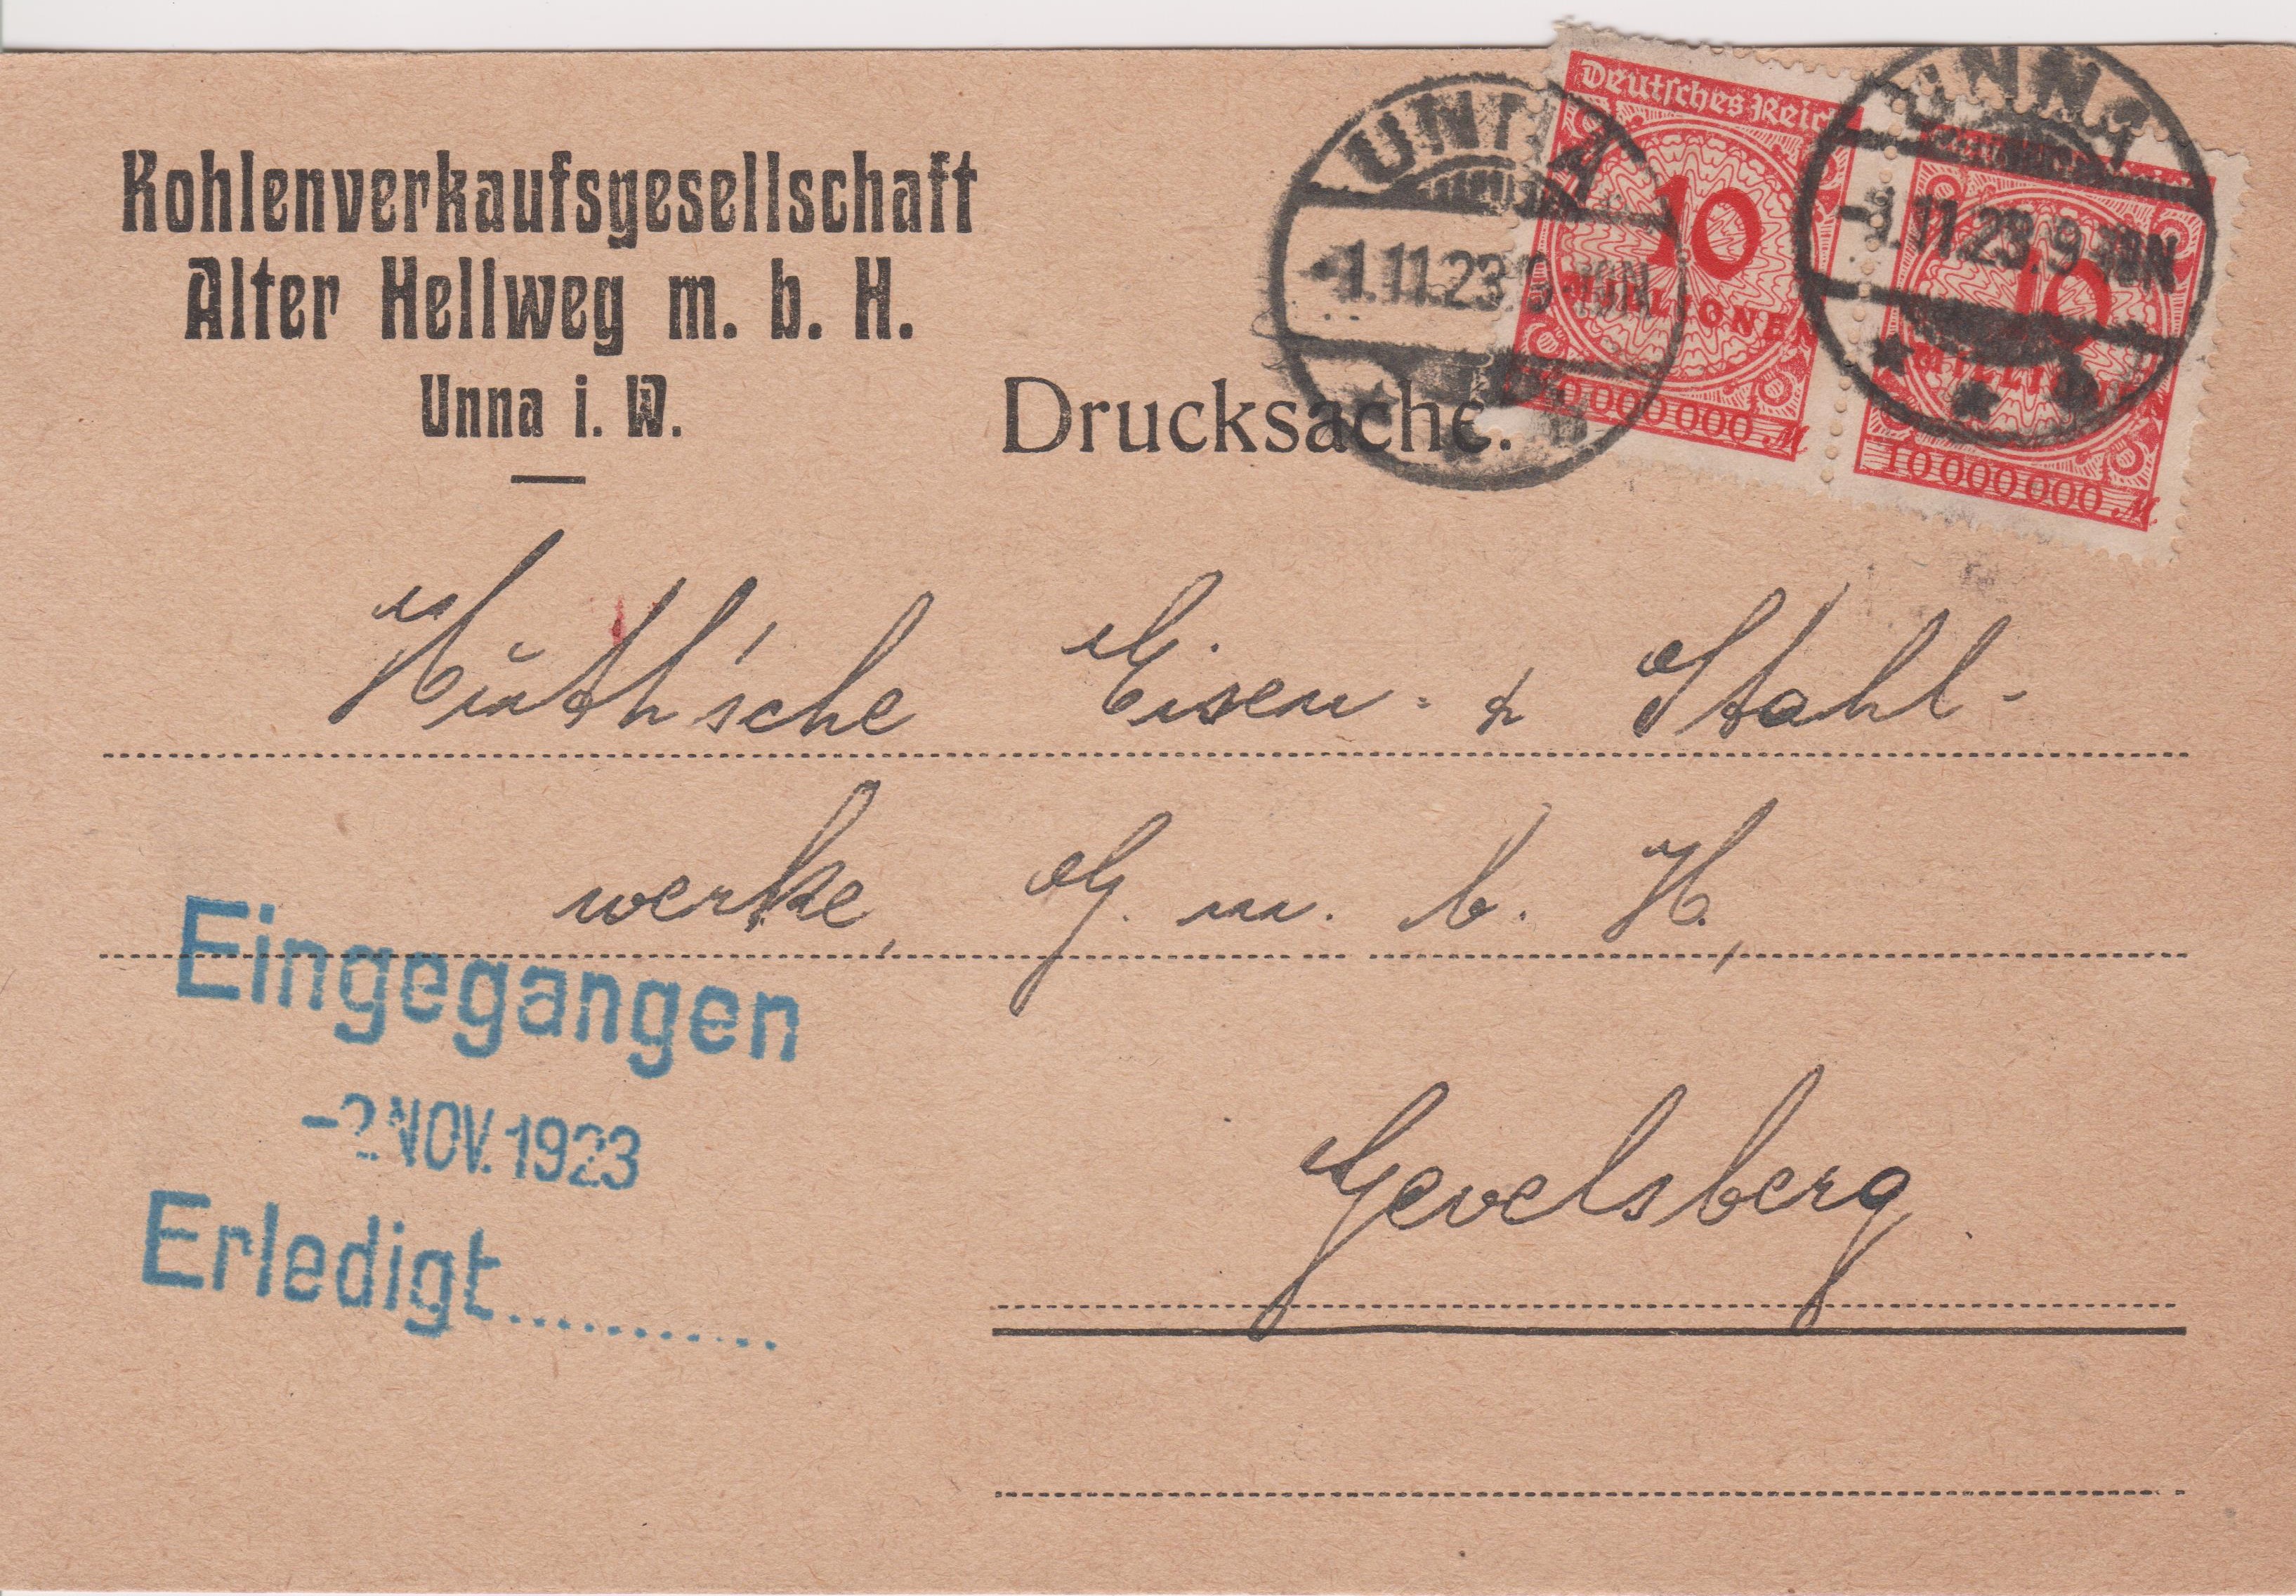 Kohlenverkaufsgesellschaft
Alter Hellweg m. b. H.
Unna i. W.
Drucksache.
UNNA
-1.11.23.9-10N
Deutsches Reich
10
MILLIONEN
10000000 M
UNNA
-1.11.23.9-10N
10
MILLIONEN
10000000 M
Huth'sche Eisen- & Stahl-
werke, G. m. b. H.,
Gevelsberg.
Eingegangen
-2.NOV.1923
Erledigt............